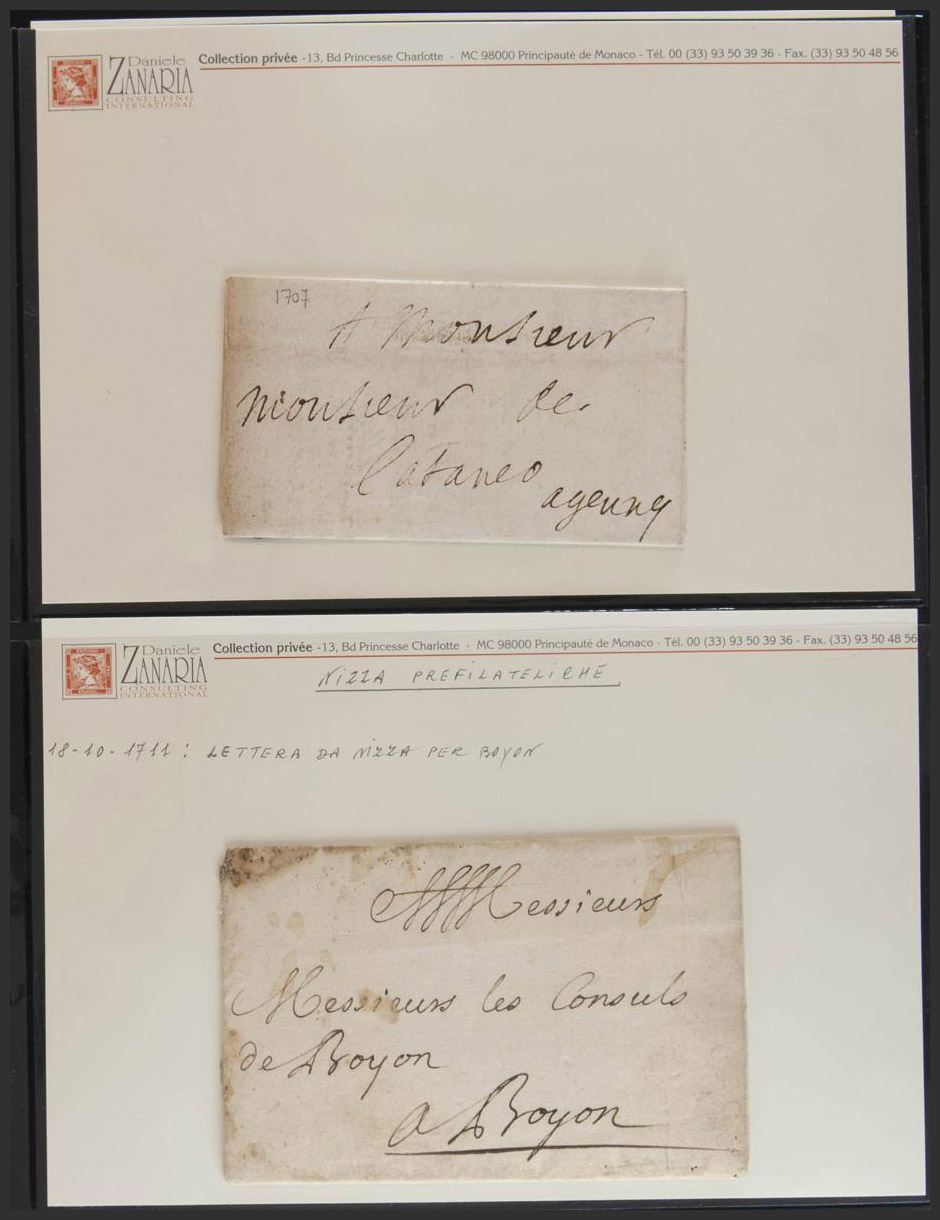 Daniele
ZANARIA
CONSULTING
INTERNATIONAL
Collection privée - 13, Bd Princesse Charlotte - MC 98000 Principauté de Monaco - Tél. 00 (33) 93 50 39 36 - Fax. (33) 93 50 48 56
1707
A Monsieur
Monsieur de
Cataneo
Daniele
ZANARIA
CONSULTING
INTERNATIONAL
Collection privée - 13, Bd Princesse Charlotte - MC 98000 Principauté de Monaco - Tél. 00 (33) 93 50 39 36 - Fax. (33) 93 50 48 56
NIZZA PREFILATELICHE
18-10-1711: LETTERA DA NIZZA PER BOYON
A Messieurs
Messieurs les Consuls
de Broyon
a Broyon